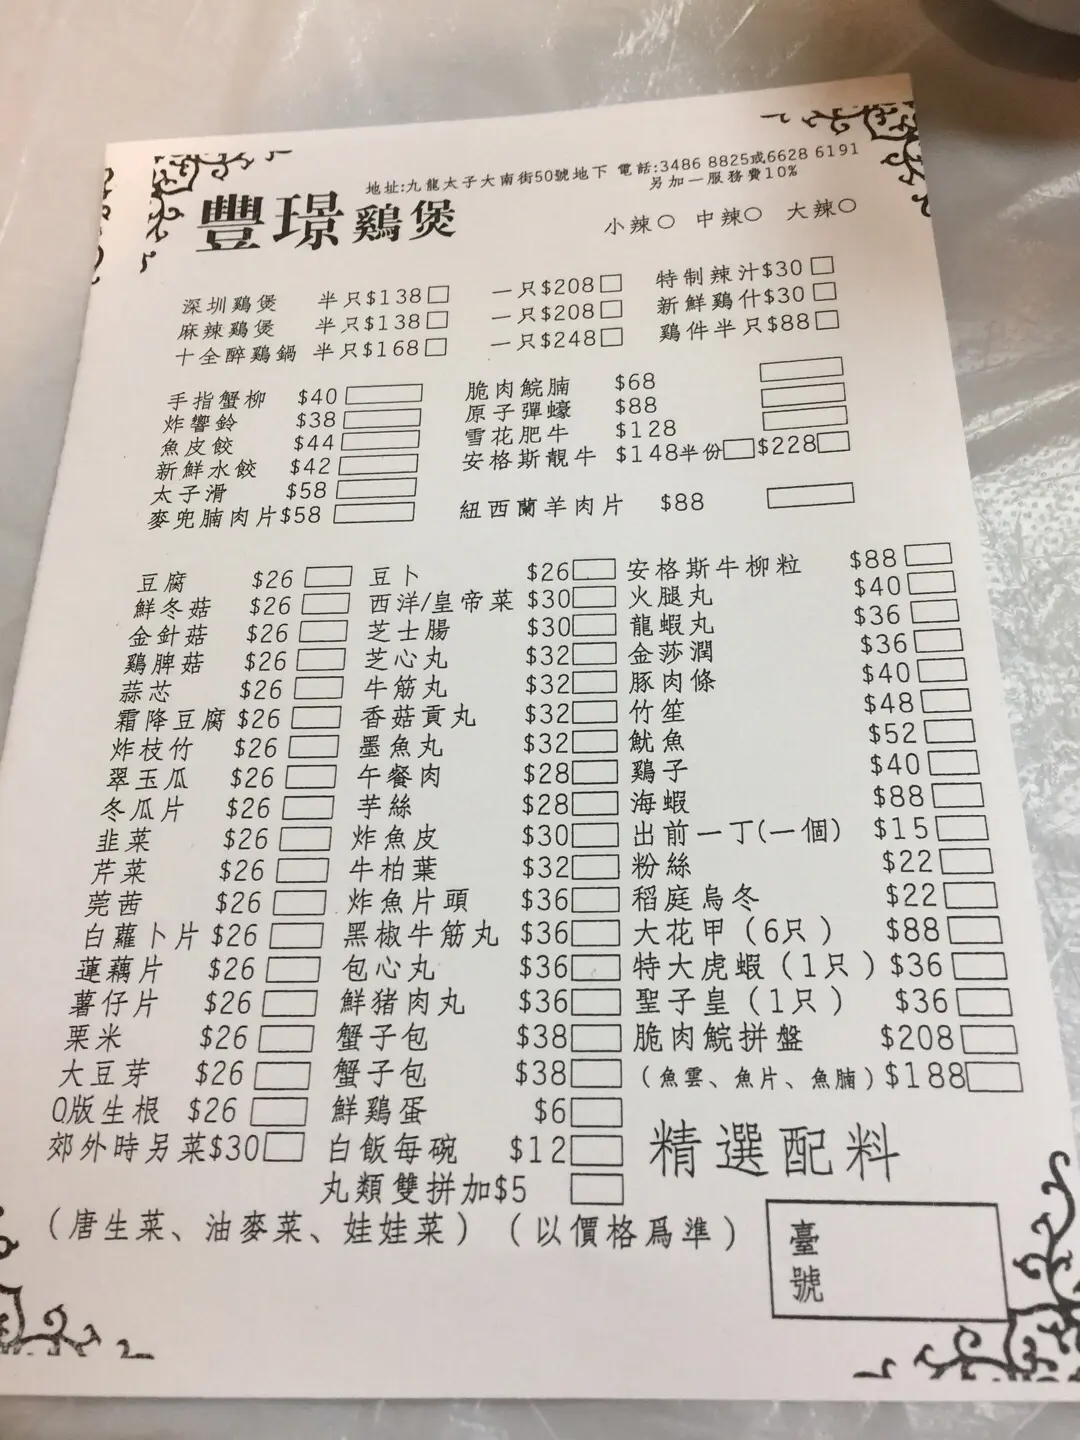 地址:九龍太子大南街50號地下 電話:3486 8825或6628 6191
另加一服務費10%
豐璟鷄煲
小辣○ 中辣○ 大辣○
深圳鷄煲 半只$138□ 一只$208□ 特制辣汁$30□
麻辣鷄煲 半只$138□ 一只$208□ 新鮮鷄什$30□
十全醉鷄鍋 半只$168□ 一只$248□ 鷄件半只$88□
手指蟹柳 $40 脆肉鯇腩 $68
炸響鈴 $38 原子彈蠔 $88
魚皮餃 $44 雪花肥牛 $128
新鮮水餃 $42 安格斯靚牛 $148半份□$228□
太子滑 $58
麥兜腩肉片$58 紐西蘭羊肉片 $88
豆腐 $26 豆卜 $26 安格斯牛柳粒 $88
鮮冬菇 $26 西洋/皇帝菜 $30 火腿丸 $40
金針菇 $26 芝士腸 $30 龍蝦丸 $36
鷄脾菇 $26 芝心丸 $32 金莎潤 $36
蒜芯 $26 牛筋丸 $32 豚肉條 $40
霜降豆腐 $26 香菇貢丸 $32 竹笙 $48
炸枝竹 $26 墨魚丸 $32 魷魚 $52
翠玉瓜 $26 午餐肉 $28 鷄子 $40
冬瓜片 $26 芋絲 $28 海蝦 $88
韭菜 $26 炸魚皮 $30 出前一丁(一個) $15
芹菜 $26 牛柏葉 $32 粉絲 $22
莞茜 $26 炸魚片頭 $36 稻庭烏冬 $22
白蘿卜片 $26 黑椒牛筋丸 $36 大花甲(6只) $88
蓮藕片 $26 包心丸 $36 特大虎蝦(1只) $36
薯仔片 $26 鮮猪肉丸 $36 聖子皇(1只) $36
栗米 $26 蟹子包 $38 脆肉鯇拼盤 $208
大豆芽 $26 蟹子包 $38 (魚雲、魚片、魚腩) $188
Q版生根 $26 鮮鷄蛋 $6
郊外時另菜$30 白飯每碗 $12
精選配料
丸類雙拼加$5
(唐生菜、油麥菜、娃娃菜) (以價格爲準)
臺
號